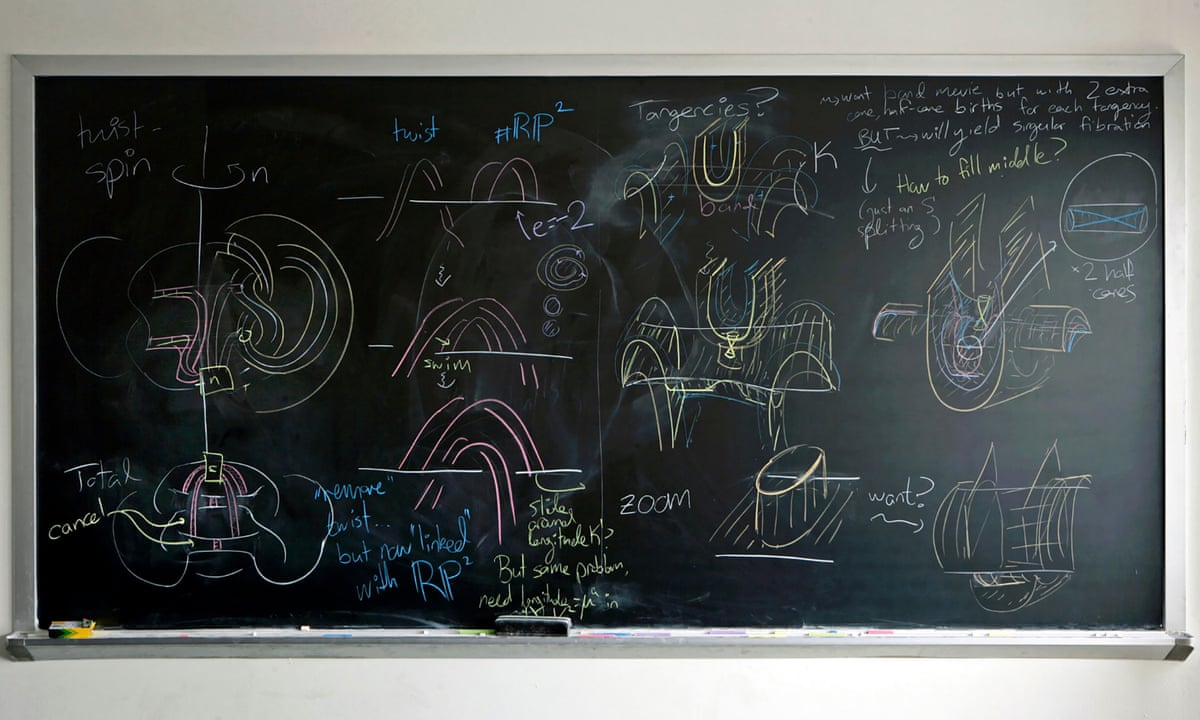 twist-
spin
n
n
s
Total
cancel
twist #RP²
e=-2
swim
"remove"
twist...
but now "linked"
with RP²
slide
around
longitude K?
But same problem,
need longitude = in
Tangencies?
K
band
ZOOM
want band movie but with 2 extra
cone, half-cone births for each tangency.
BUT → will yield singular fibration
How to fill middle?
(just an S
splitting)
×2 half
cones
want?